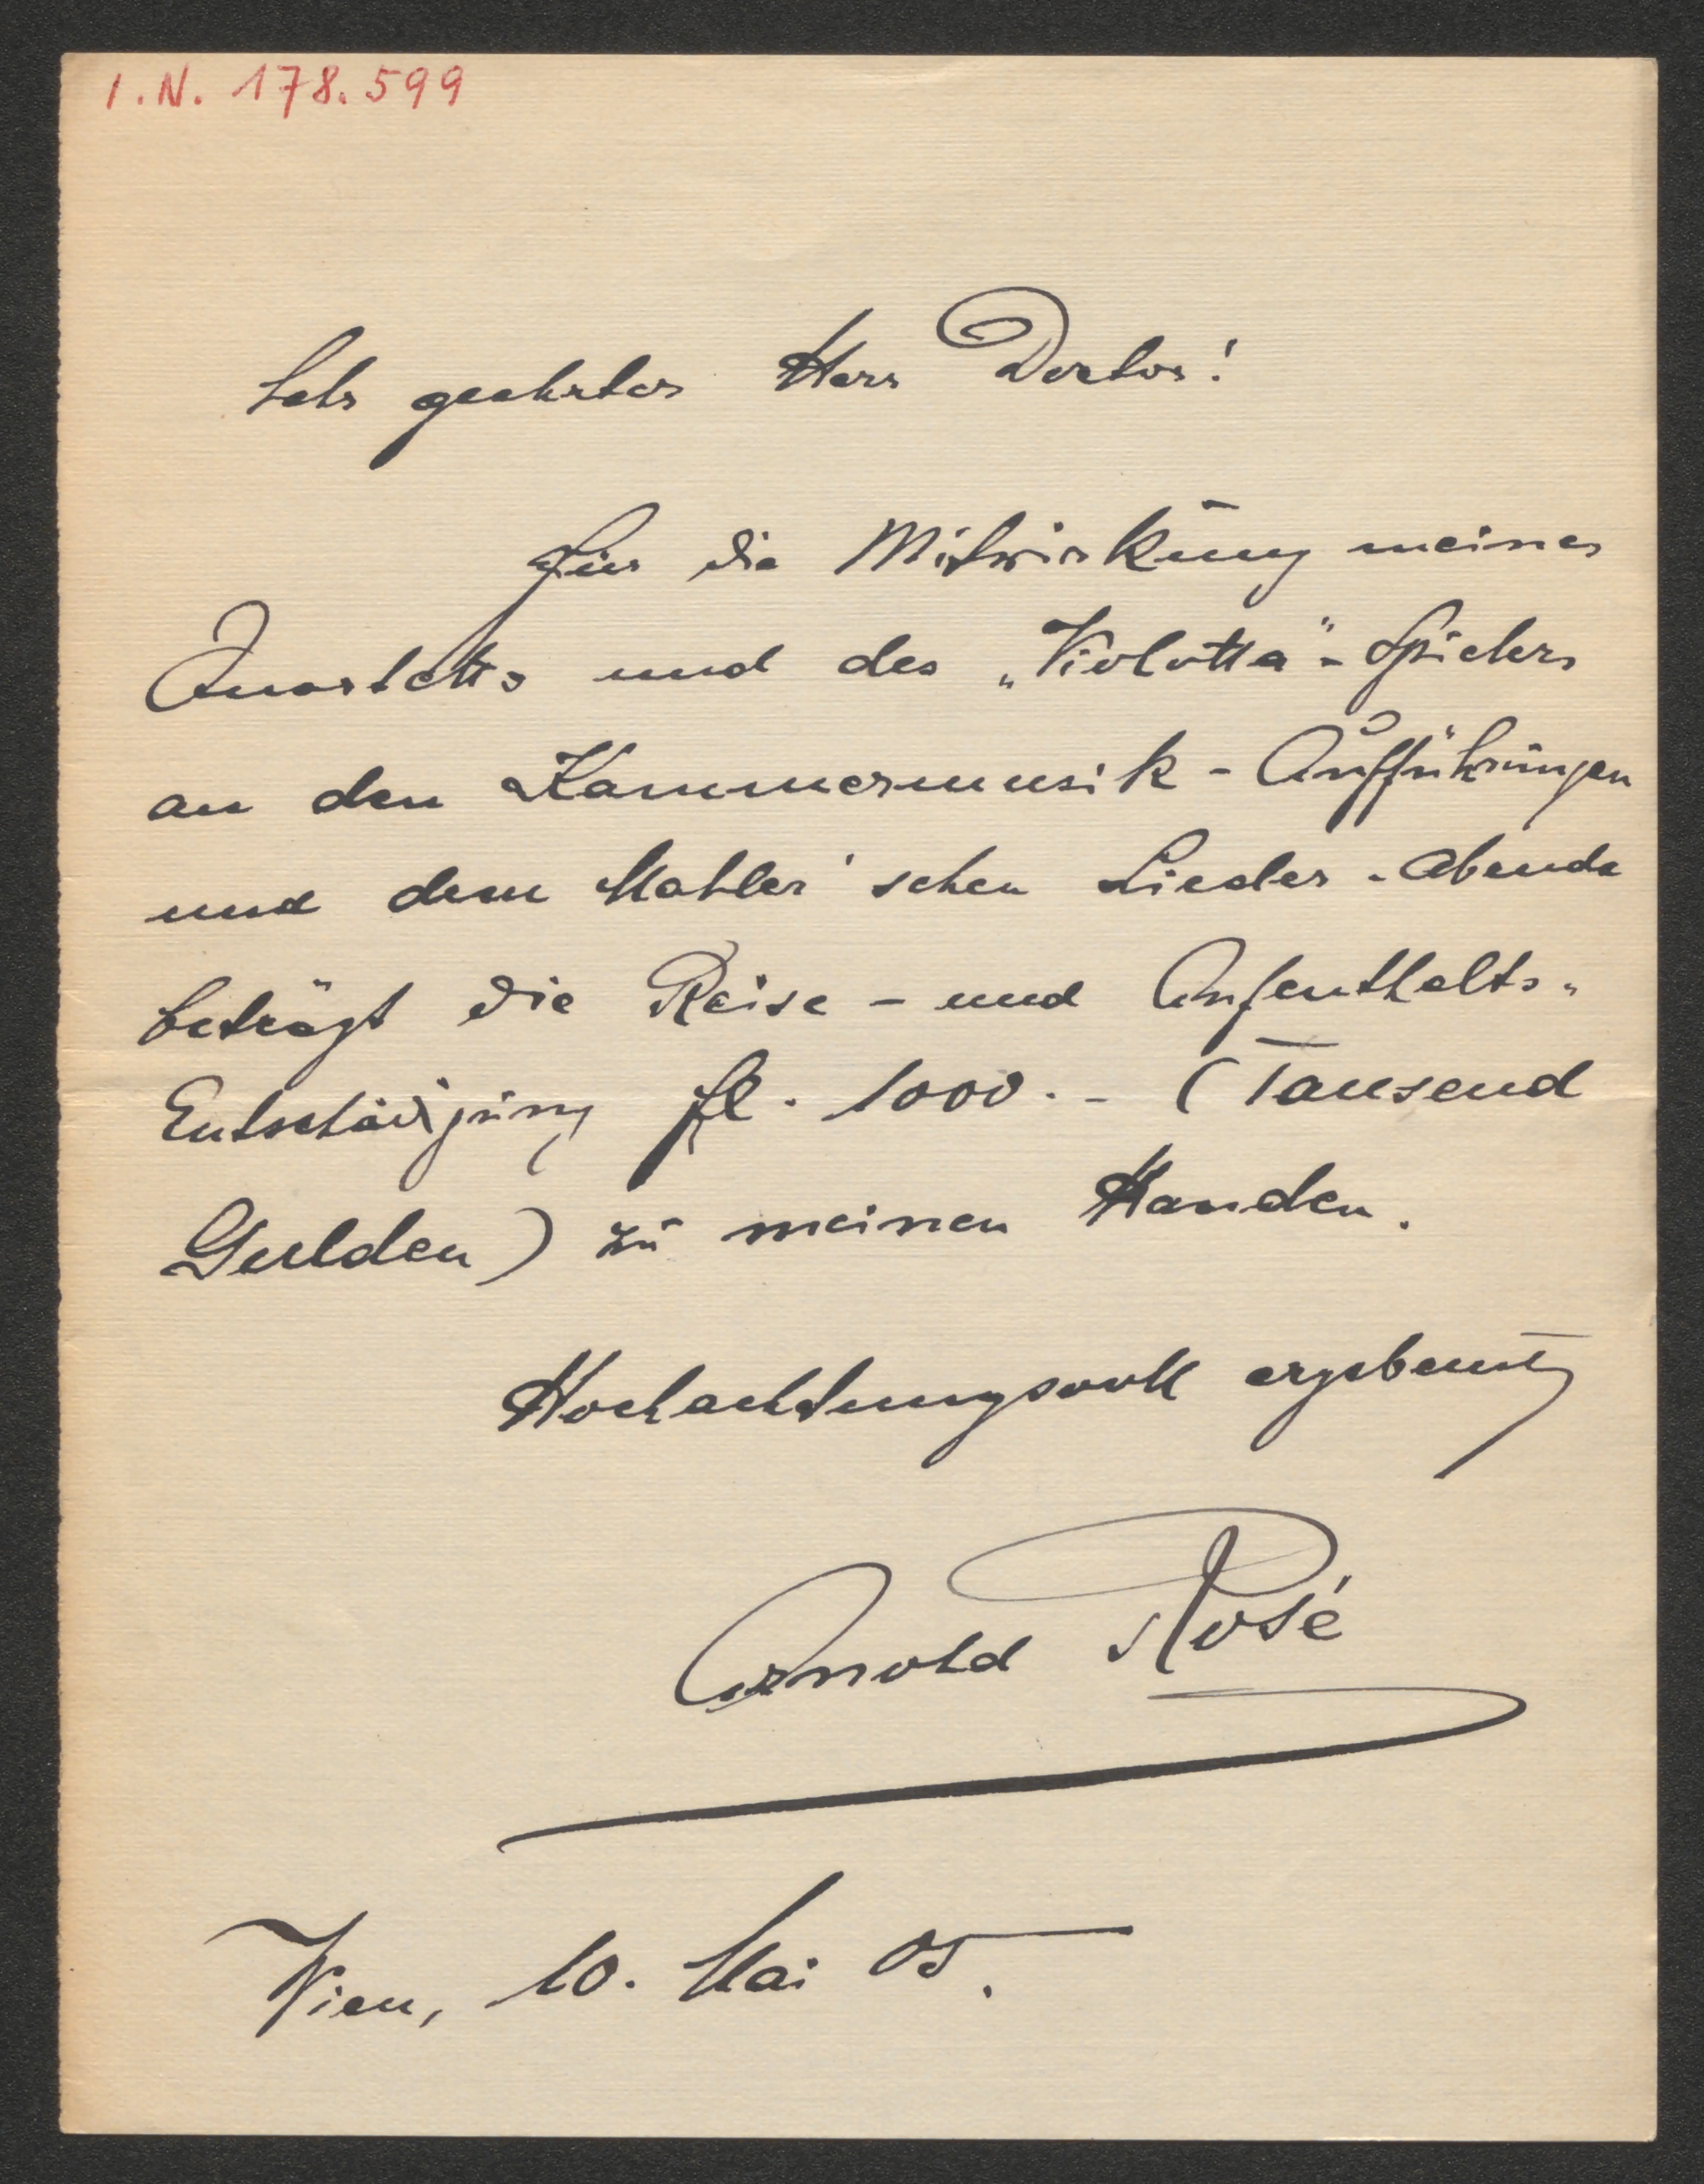 I.N. 178.599
Sehr geehrter Herr Doctor!
Für die Mitwirkung meines
Quartetts und des „Violotta“-Spielers
an den Kammermusik-Aufführungen
und dem Mahler'schen Lieder-Abende
beträgt die Reise- und Aufenthalts-
Entschädigung fl. 1000.- (Tausend
Gulden) zu meinen Handen.
Hochachtungsvoll ergebenst
Arnold Rosé
Wien, 10. Mai 05.